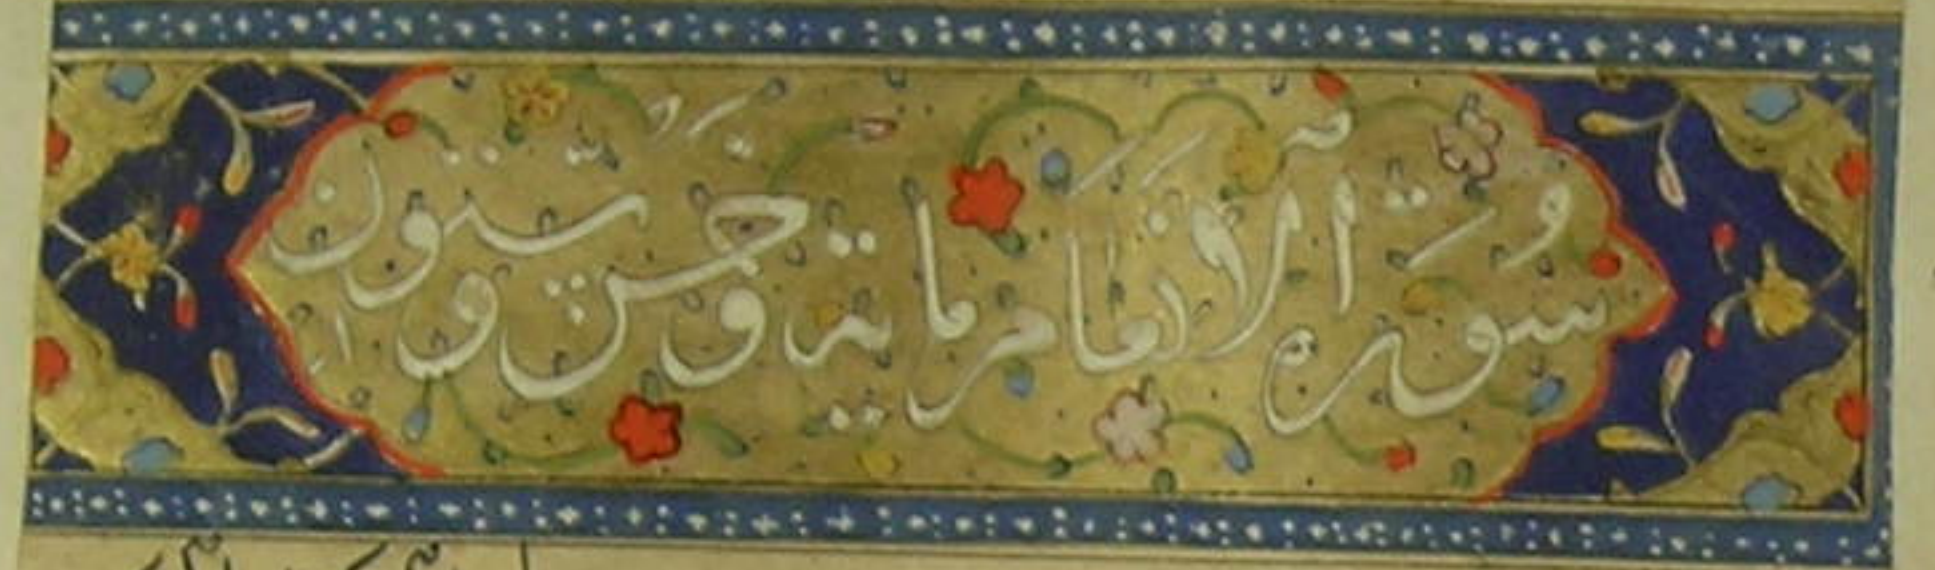 سورة الانعام ماية وخمس وستون